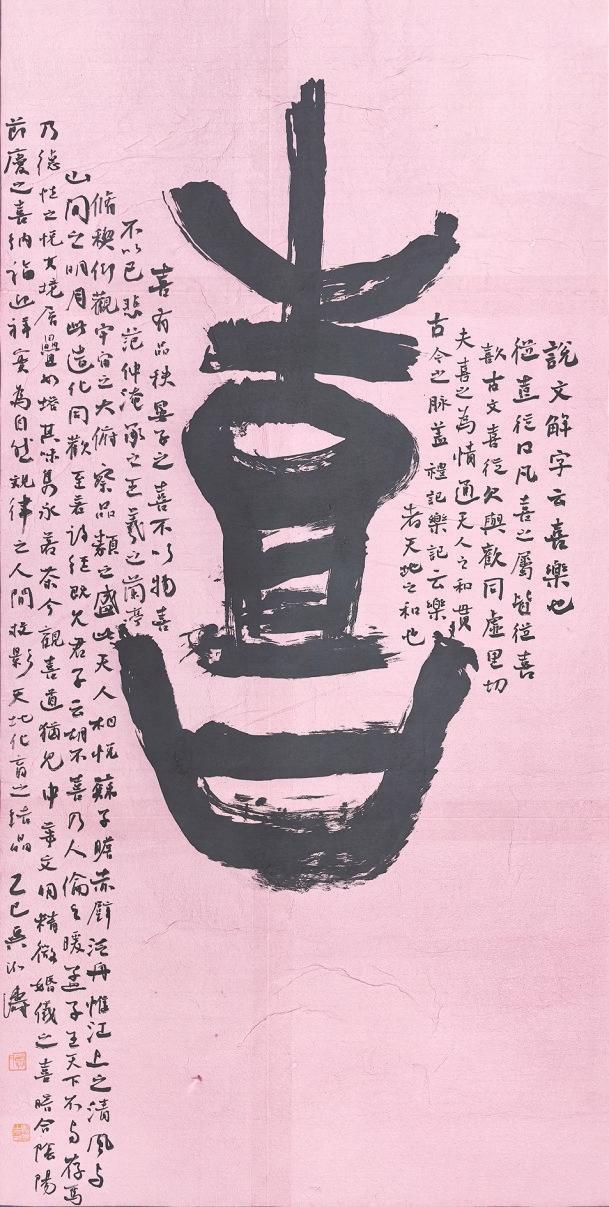 喜
說文解字云喜樂也
從壴從口凡喜之屬皆從喜
歖古文喜從欠與歡同虛里切
夫喜之為情通天人之和貫
古今之脉蓋禮記樂記云樂
者天地之和也
喜有品秩晏子之喜不以物喜
不以己悲范仲淹承之王羲之蘭亭
脩禊仰觀宇宙之大俯察品類之盛此天人相悅蘇子瞻赤壁泛舟惟江上之清風与
山间之明月此造化同歡至若詩經既見君子云胡不喜乃人倫之暖孟子王天下不与存焉
乃德性之悅其境層疊如塔其味雋永若茶今觀喜道猶見中華文明精微婚儀之喜暗合陰陽
節慶之喜納福迎祥实為自然規律之人間投影天地化育之结晶 乙巳吴 濤